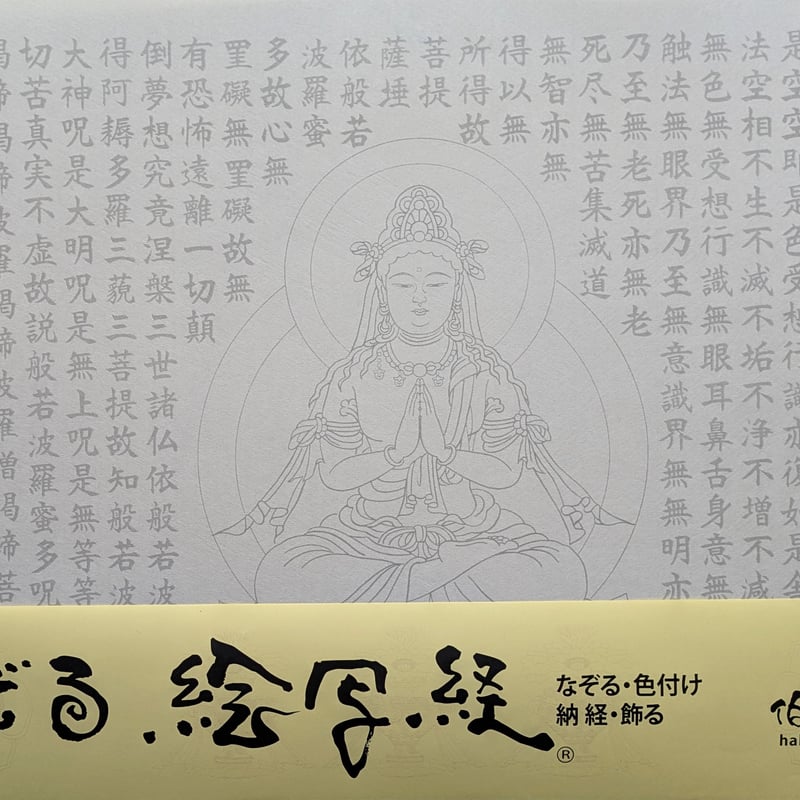 是空空即是色受想行識亦復如是舎
法空相不生不滅不垢不浄不増不減
無色無受想行識無眼耳鼻舌身意無
触法無眼界乃至無意識界無無明亦
乃至無老死亦無老
死尽無苦集滅道
無智亦無
得以無
所得故
菩提
薩埵
依般若
波羅蜜
多故心無
罣礙無罣礙故無
有恐怖遠離一切顛
倒夢想究竟涅槃三世諸仏依般若波
得阿耨多羅三藐三菩提故知般若波
大神呪是大明呪是無上呪是無等等
切苦真実不虚故説般若波羅蜜多呪
羯諦羯諦波羅羯諦波羅僧羯諦菩
ぞる 絵写経®
なぞる・色付け
納経・飾る
伯
hai